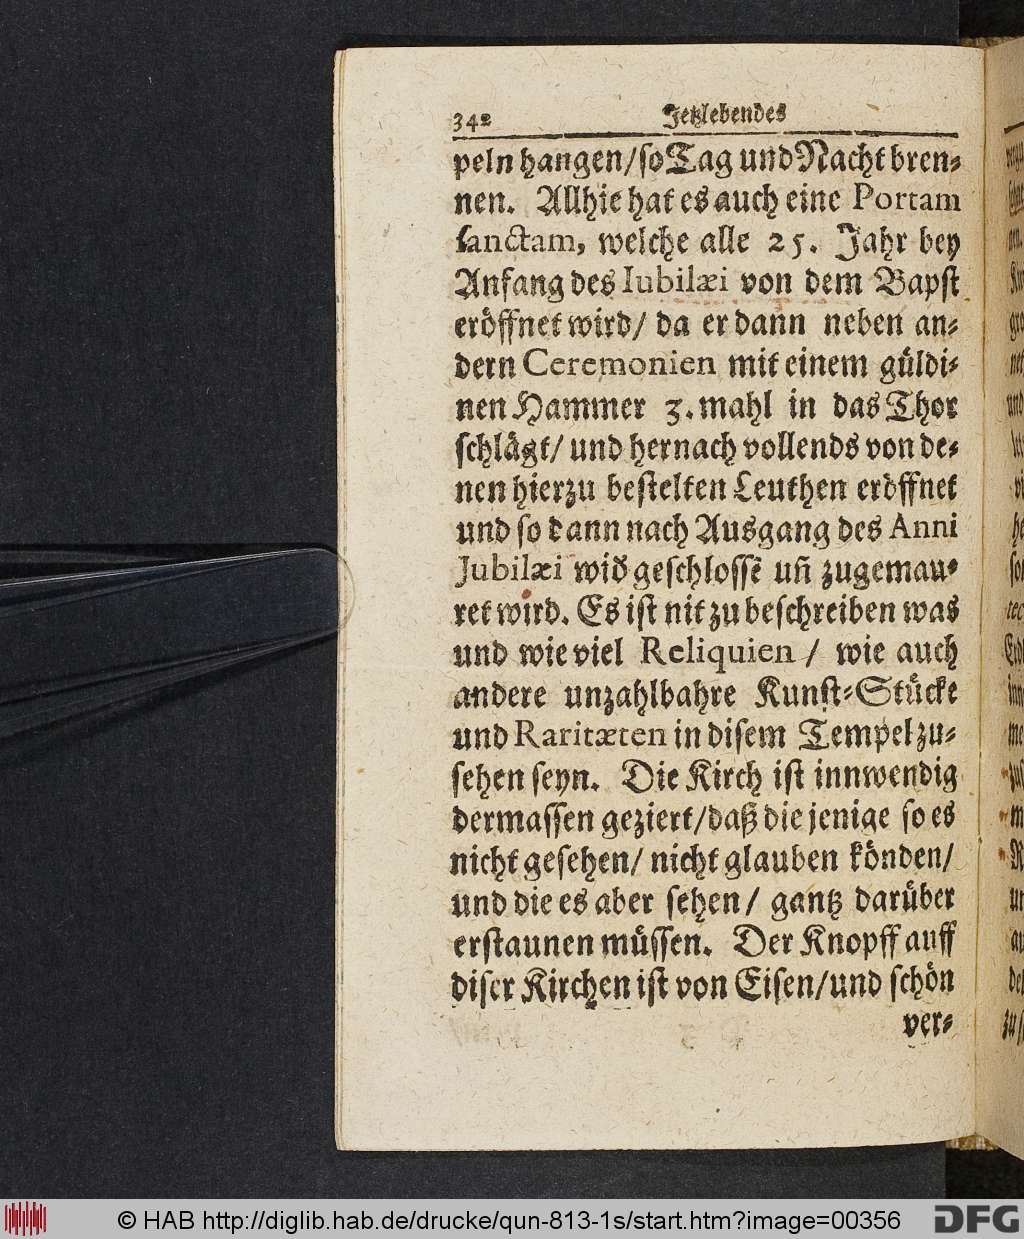 342 Jetzlebendes
peln hangen/ so Tag und Nacht bren⸗
nen. Allhie hat es auch eine Portam
sanctam, welche alle 25. Jahr bey
Anfang des Iubilæi von dem Bapst
eröffnet wird/ da er dann neben an⸗
dern Ceremonien mit einem güldi⸗
nen Hammer 3. mahl in das Thor
schlägt/ und hernach vollends von de⸗
nen hierzu bestelten Leuthen eröffnet
und so dann nach Ausgang des Anni
Jubilæi wid geschlossē uñ zugemau⸗
ret wird. Es ist nit zu beschreiben was
und wie viel Reliquien / wie auch
andere unzahlbahre Kunst⸗Stücke
und Raritæten in disem Tempel zu⸗
sehen seyn. Die Kirch ist innwendig
dermassen geziert/ daß die jenige so es
nicht gesehen/ nicht glauben könden/
und die es aber sehen/ gantz darüber
erstaunen müssen. Der Knopff auff
diser Kirchen ist von Eisen/ und schön
ver⸗
© HAB http://diglib.hab.de/drucke/qun-813-1s/start.htm?image=00356
DFG